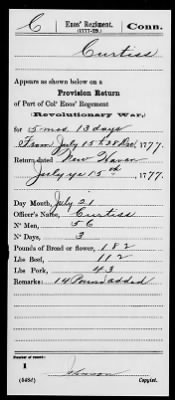 C Enos' Regiment. Conn.
(1777-78.)
Curtiss
Appears as shown below on a
Provision Return
of Part of Col° Enos' Regement
(Revolutionary War,)
for 5 mos 13 days
From July 15 to 28 Dec, 1777.
Return dated New Haven
July ye 15th, 1777.
Day Month, July 21
Officer's Name, Curtiss
N° Men, 56
N° Days, 3
Pounds of Bread or flower, 182
Lbs Beef, 112
Lbs Pork, 43
Remarks: 14 Pound added
Number of record:
1
Johnson
(545d) Copyist.